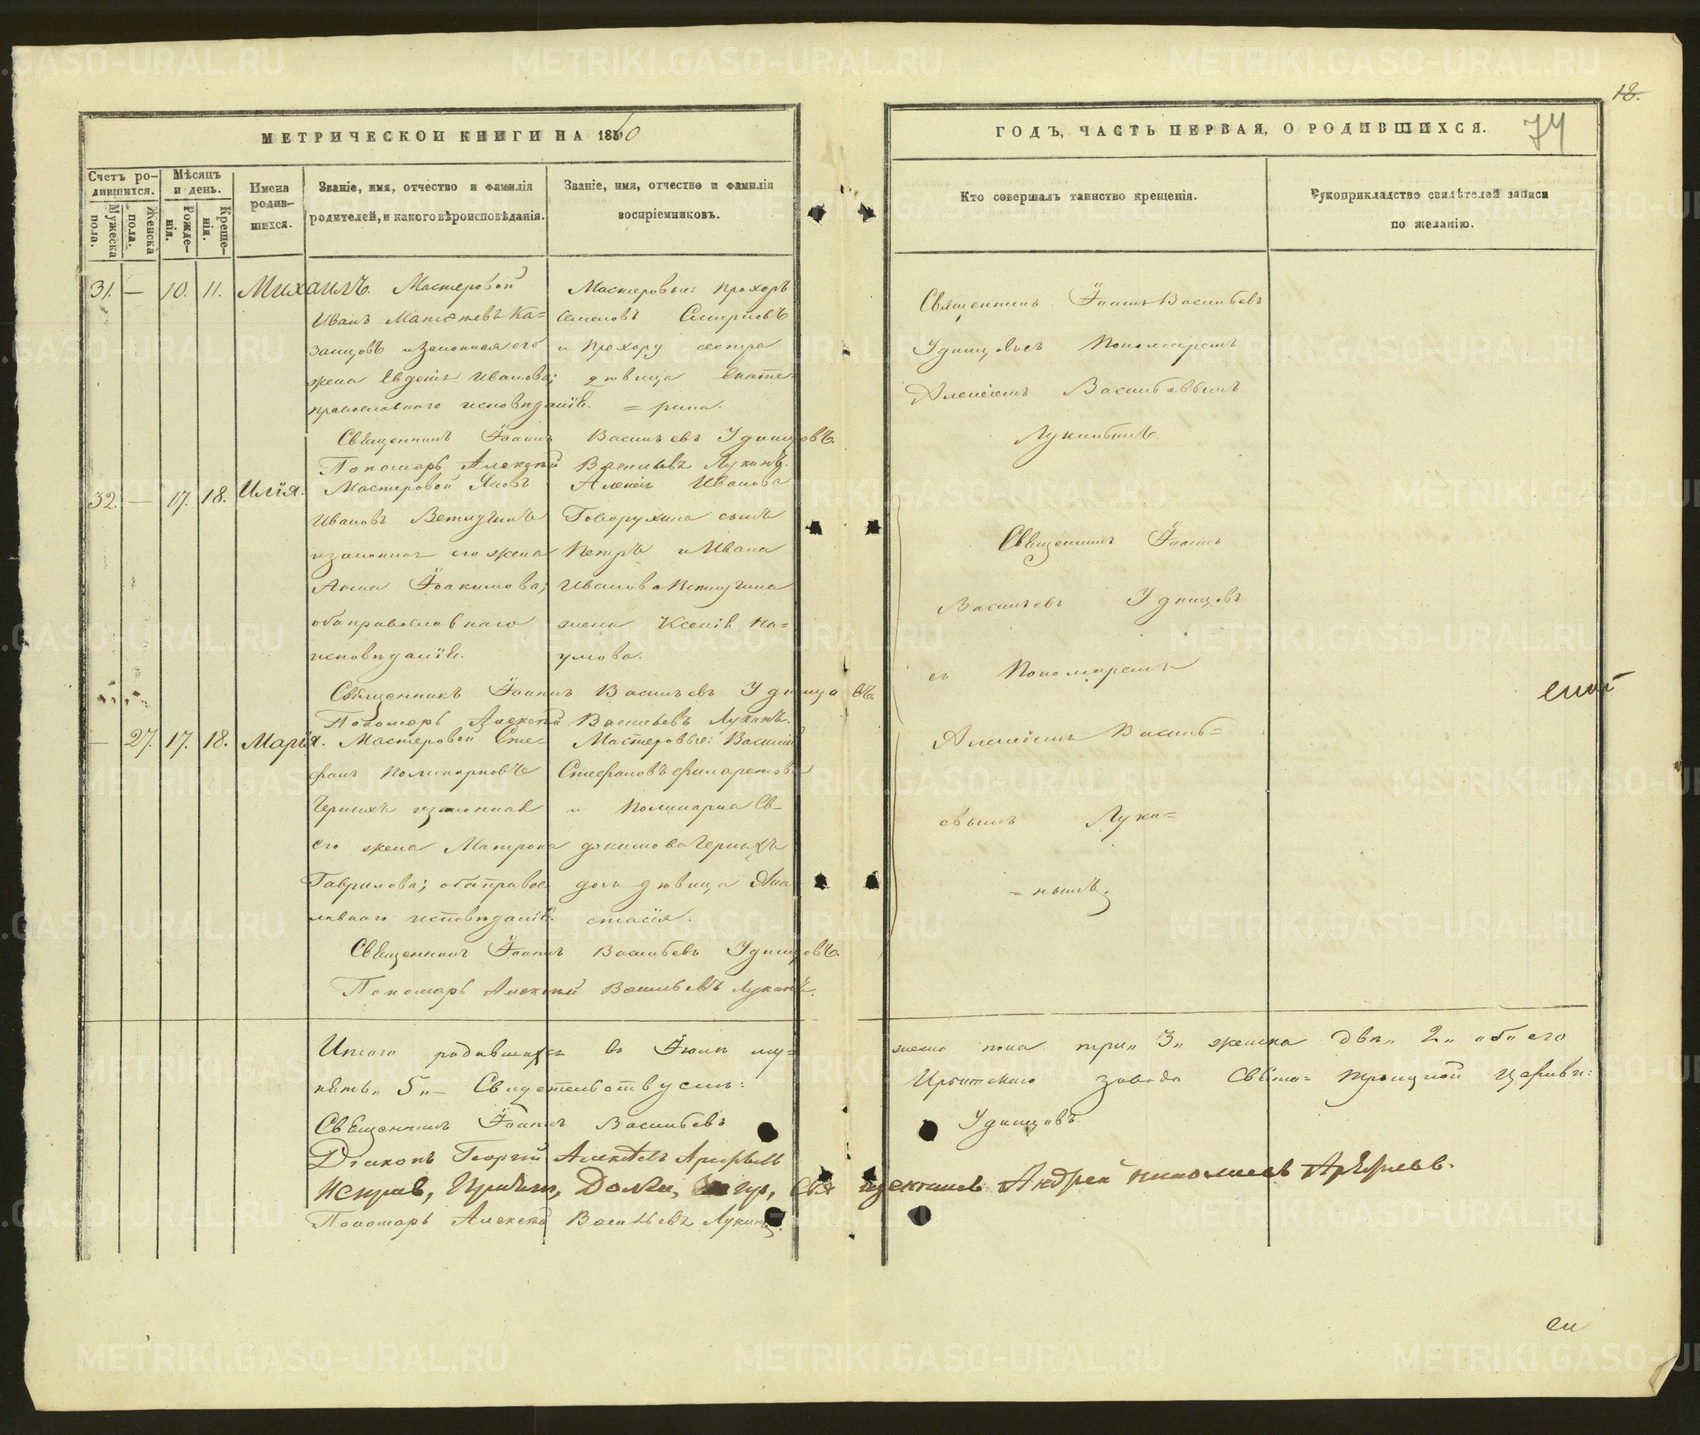 18.
74
МЕТРИЧЕСКОЙ КНИГИ НА 1860
ГОДЪ, ЧАСТЬ ПЕРВАЯ, О РОДИВШИХСЯ.
Счетъ родившихся.
Мужеска пола.
Женска пола.
Мѣсяцъ и день.
Рожденія.
Крещенія.
Имена родившихся.
Званіе, имя, отчество и фамилія родителей, и какого вѣроисповѣданія.
Званіе, имя, отчество и фамилія воспріемниковъ.
Кто совершалъ таинство крещенія.
Рукоприкладство свидѣтелей записи по желанію.
31. — 10. 11. Михаилъ.
Мастеровой
Иванъ Ка=
занцовъ и законная его
жена Евдокія Иванова;
православнаго исповѣданія.
Мастеровые: Прохоръ
Семеновъ Смирновъ
и Прохору сестра
дѣвица Екате=
=рина.
Священникъ Іоаннъ Васильевъ
Удинцовъ съ Пономаремъ
Алексіемъ Васильевымъ
Лукинымъ
Священникъ Іоаннъ Васильевъ Удинцовъ.
Пономарь Алексѣй Васильевъ Лукинъ.
32. — 17. 18. Илія.
Мастеровой Яковъ
Ивановъ Ветлугинъ
и законная его жена
Анна Іоакимова;
оба православнаго
исповѣданія.
Алексія Иванова
Говорухина сынъ
Петръ и Ивана
Иванова Ветлугина
жена Ксенія На=
умова.
Священникъ Іоаннъ
Васильевъ Удинцовъ
съ Пономаремъ
Алексіемъ Василь=
евымъ Луки=
=нымъ.
Священникъ Іоаннъ Васильевъ Удинцовъ.
Пономарь Алексѣй Васильевъ Лукинъ.
— 27. 17. 18. Марія.
Мастеровой Сте=
фанъ Поликарповъ
Черныхъ и законная
его жена Матрона
Гаврилова; оба право
славнаго исповѣданія.
Мастеровые: Василій
Стефановъ
и Поликарпа Ев-
докимова Черныхъ
дочь дѣвица Ана
стасія.
Священникъ Іоаннъ Васильевъ Удинцовъ.
Пономарь Алексѣй Васильевъ Лукинъ.
Итого родившихся въ Іюлѣ му=
жеска пола три„ 3„ женска двѣ„ 2„ обоего
пять„ 5„ — Свидетельствуемъ:
Ирбитскаго завода Свято=Троицкой Церкви:
Священникъ Іоаннъ Васильевъ Удинцовъ.
Діаконъ Георгій Алексѣевъ Арефьевъ
Священникъ Андрей Николаевъ Арефьевъ.
Пономарь Алексѣй Васильевъ Лукинъ.
METRIKI.GASO-URAL.RU